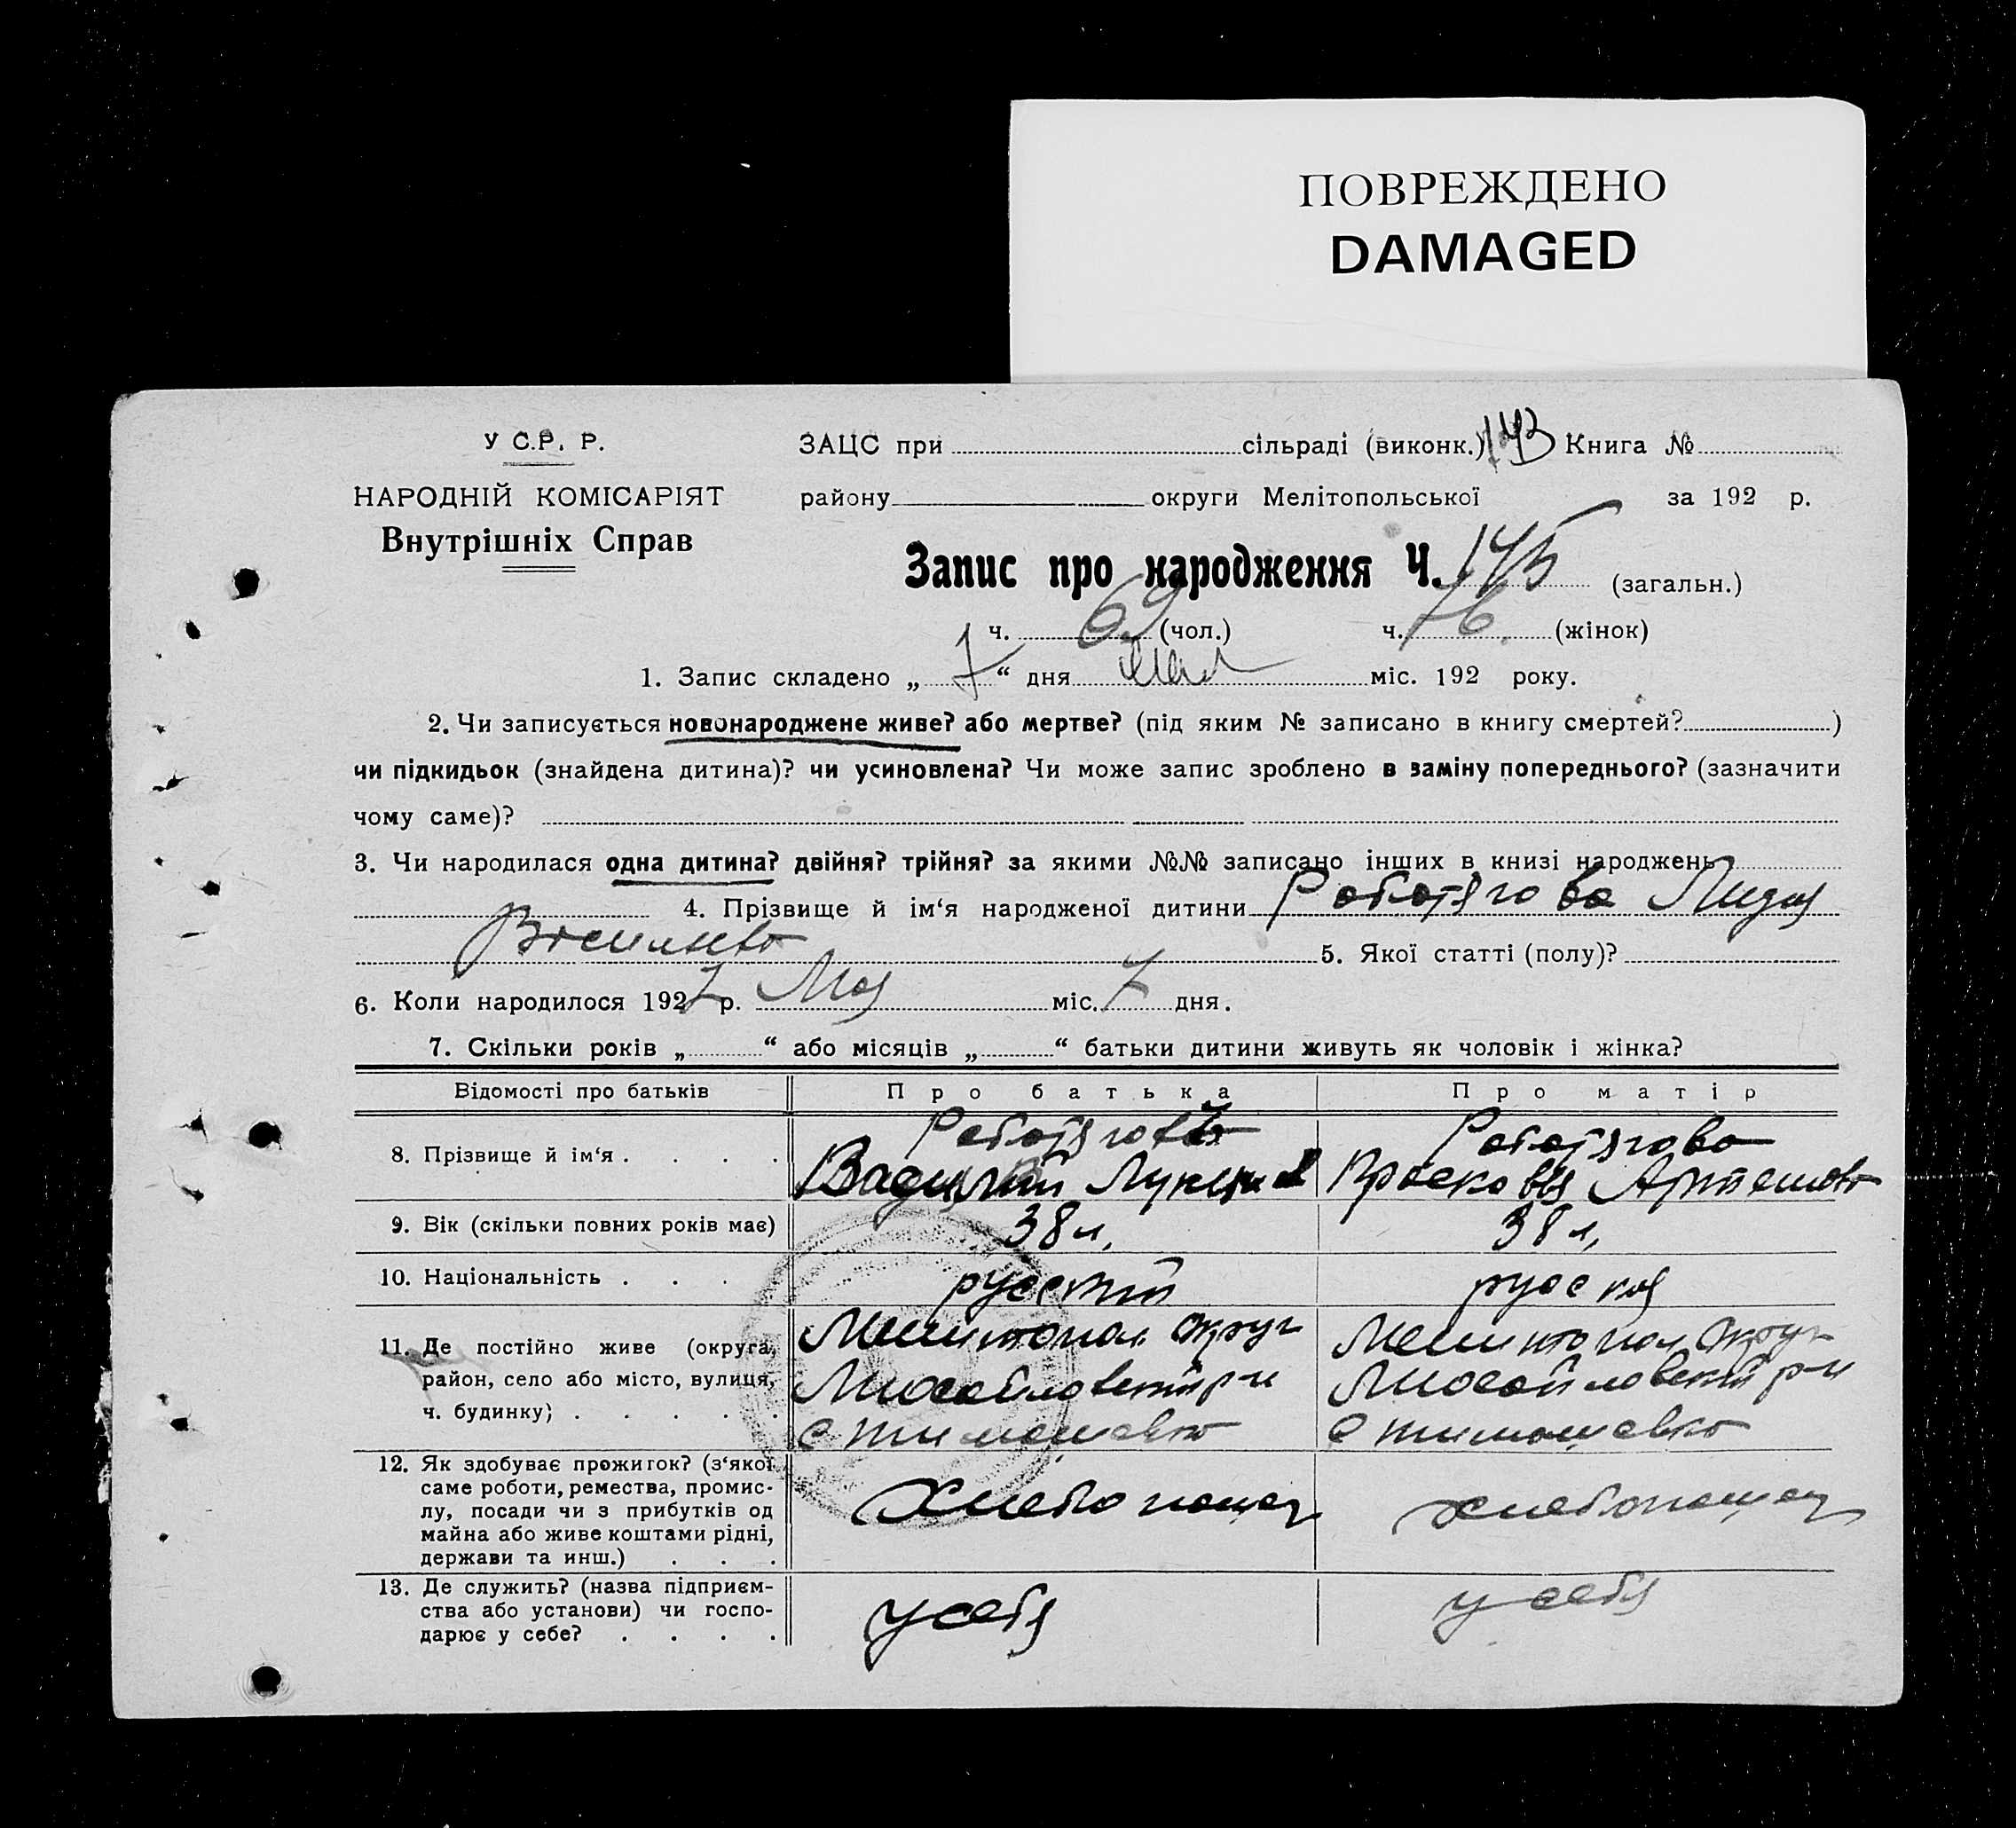 ПОВРЕЖДЕНО
DAMAGED
У С.Р. Р.
НАРОДНІЙ КОМІСАРІЯТ
Внутрішніх Справ
ЗАЦС при сільраді (виконк.) Книга №
району округи Мелітопольської за 192 р.
Запис про народження Ч. 145 (загальн.)
ч. 69 (чол.) ч. 76. (жінок)
1. Запис складено „ 7 “ дня мая міс. 192 року.
2. Чи записується новонароджене живе? або мертве? (під яким № записано в книгу смертей? )
чи підкидьок (знайдена дитина)? чи усиновлена? Чи може запис зроблено в заміну попереднього? (зазначити
чому саме)?
3. Чи народилася одна дитина? двійня? трійня? за якими №№ записано інших в книзі народжень
4. Прізвище й ім‘я народженої дитини Работягова Лидия
Васильев 5. Якої статті (полу)?
6. Коли народилося 1927 р. Мая міс. 7 дня.
7. Скільки років „ “ або місяців „ “ батьки дитини живуть як чоловік і жінка?
Відомості про батьків Про батька Про матір
8. Прізвище й ім‘я . . . .
Работягов
Василий
Работягова
Артемов
9. Вік (скільки повних років має) 38 л. 38 л.
10. Національність . . . русский руская
11. Де постійно живе (округа, район, село або місто, вулиця, ч. будинку) . . . . .
Мелитопол округ
Михайловский р-н
с Тимошевка
Мелитопол округ
Михайловский р-н
с Тимошевка
12. Як здобуває прожиток? (з‘якої
саме роботи, ремества, промис-
лу, посади чи з прибутків од
майна або живе коштами рідні,
держави та инш.) . . .
Хлебопашец
хлебопашец
13. Де служить? (назва підприєм-
ства або установи) чи госпо-
дарює у себе? . . . .
у себя
у себя